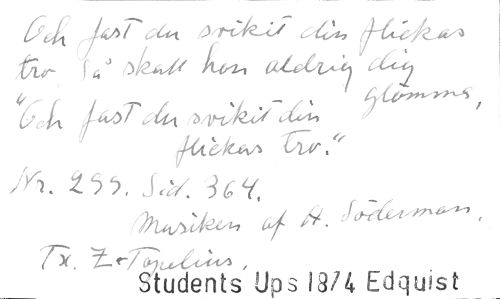 Och fast du svikit din flickas
tro, så skall hon aldrig dig
glömma,
"Och fast du svikit din
flickas tro."
Nr. 299. Sid. 364.
Musiken af H. Söderman,
Tx. Z. Topelius,
Students Ups 1874 Edquist